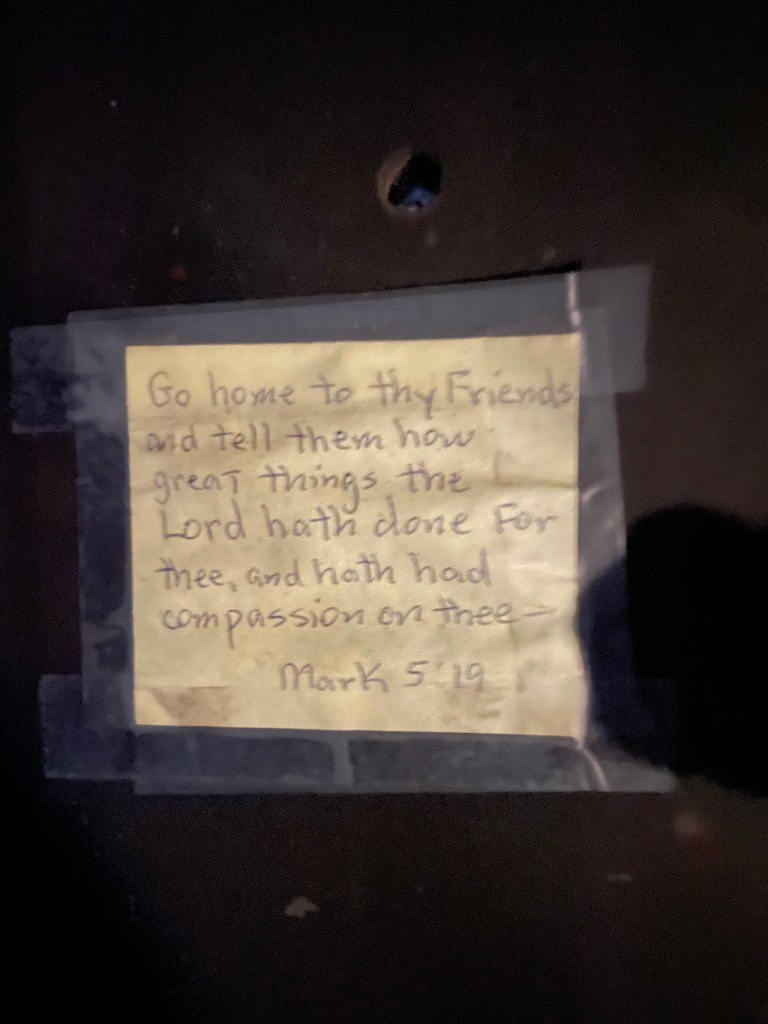 Go home to thy Friends
and tell them how
great things the
Lord hath done For
thee, and hath had
compassion on thee –
Mark 5:19